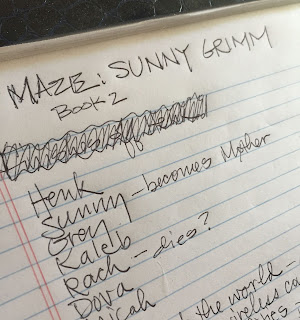 MAZE: SUNNY GRIMM
Book 2
Henk
Sunny – becomes Mother
Grey
Kaleb
Rach – dies?
Dova
Micah
the world –
wireless